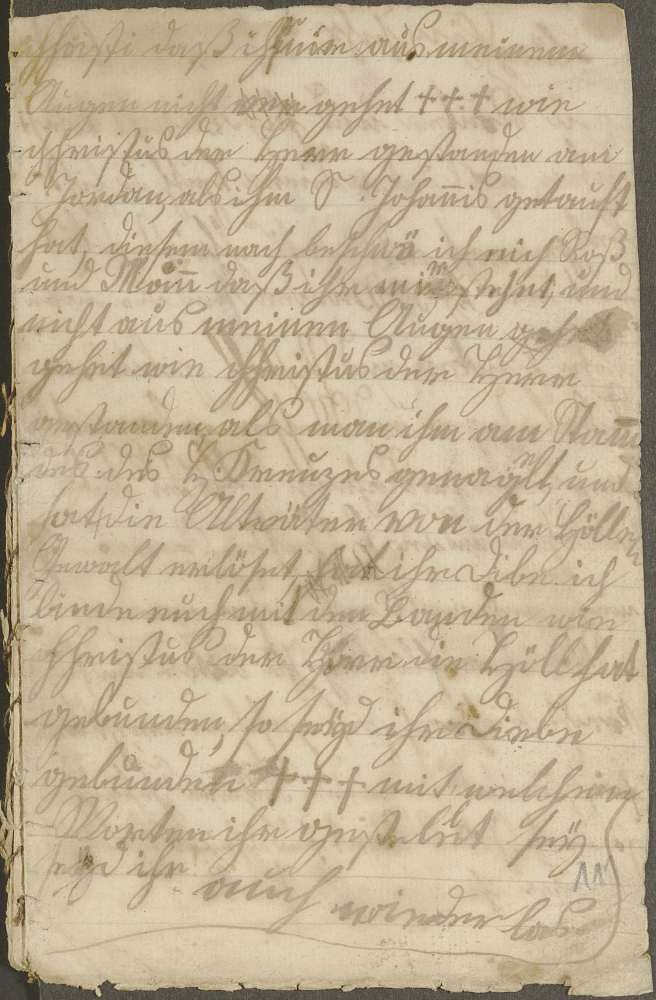 Christi daß ihr mir aus meinem
Augen nicht gehet +++ wie
Christus der Herr gestanden am
Jordan, als ihm S. Johañis getauft
hat, diesem nach beschwö ich eich Roß
und Mañ daß ihr mir stehet, und
nicht aus meinen Augen gehet
gehet wie Christus der Herr
gestanden, als man ihm am Stam̄
des H. Kreuzes genagelt, und
hat die Altväter von der Höllen
Gewalt erlöset, ihr Diebe ich
binde euch mit den Banden wie
Christus der Herr die Höll hat
gebunden, so seyd ihr Diebe
gebunden +++ mit welchem
Worten ihr gestelut sey
seyd ihr auch wieder los
11